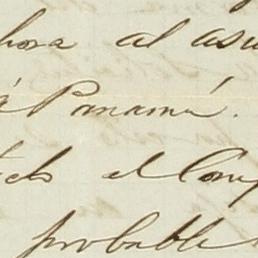 hora al asu
á Panamá.
el Con
probable